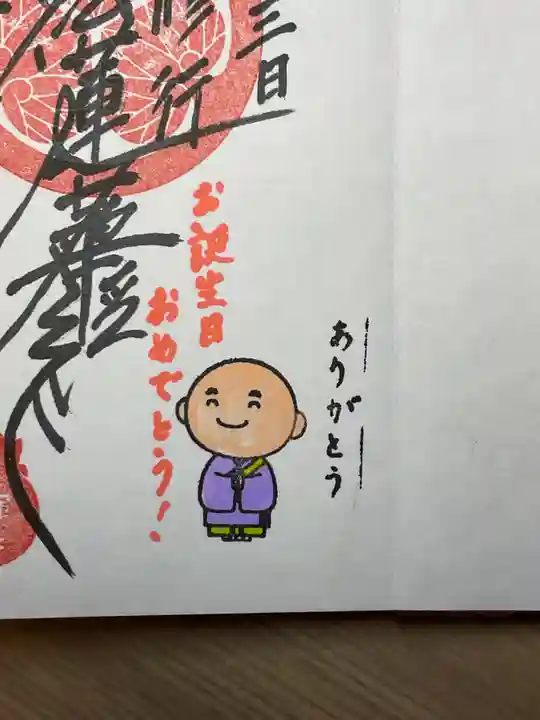 三日
修行
法蓮華経
お誕生日
おめでとう!
ありがとう